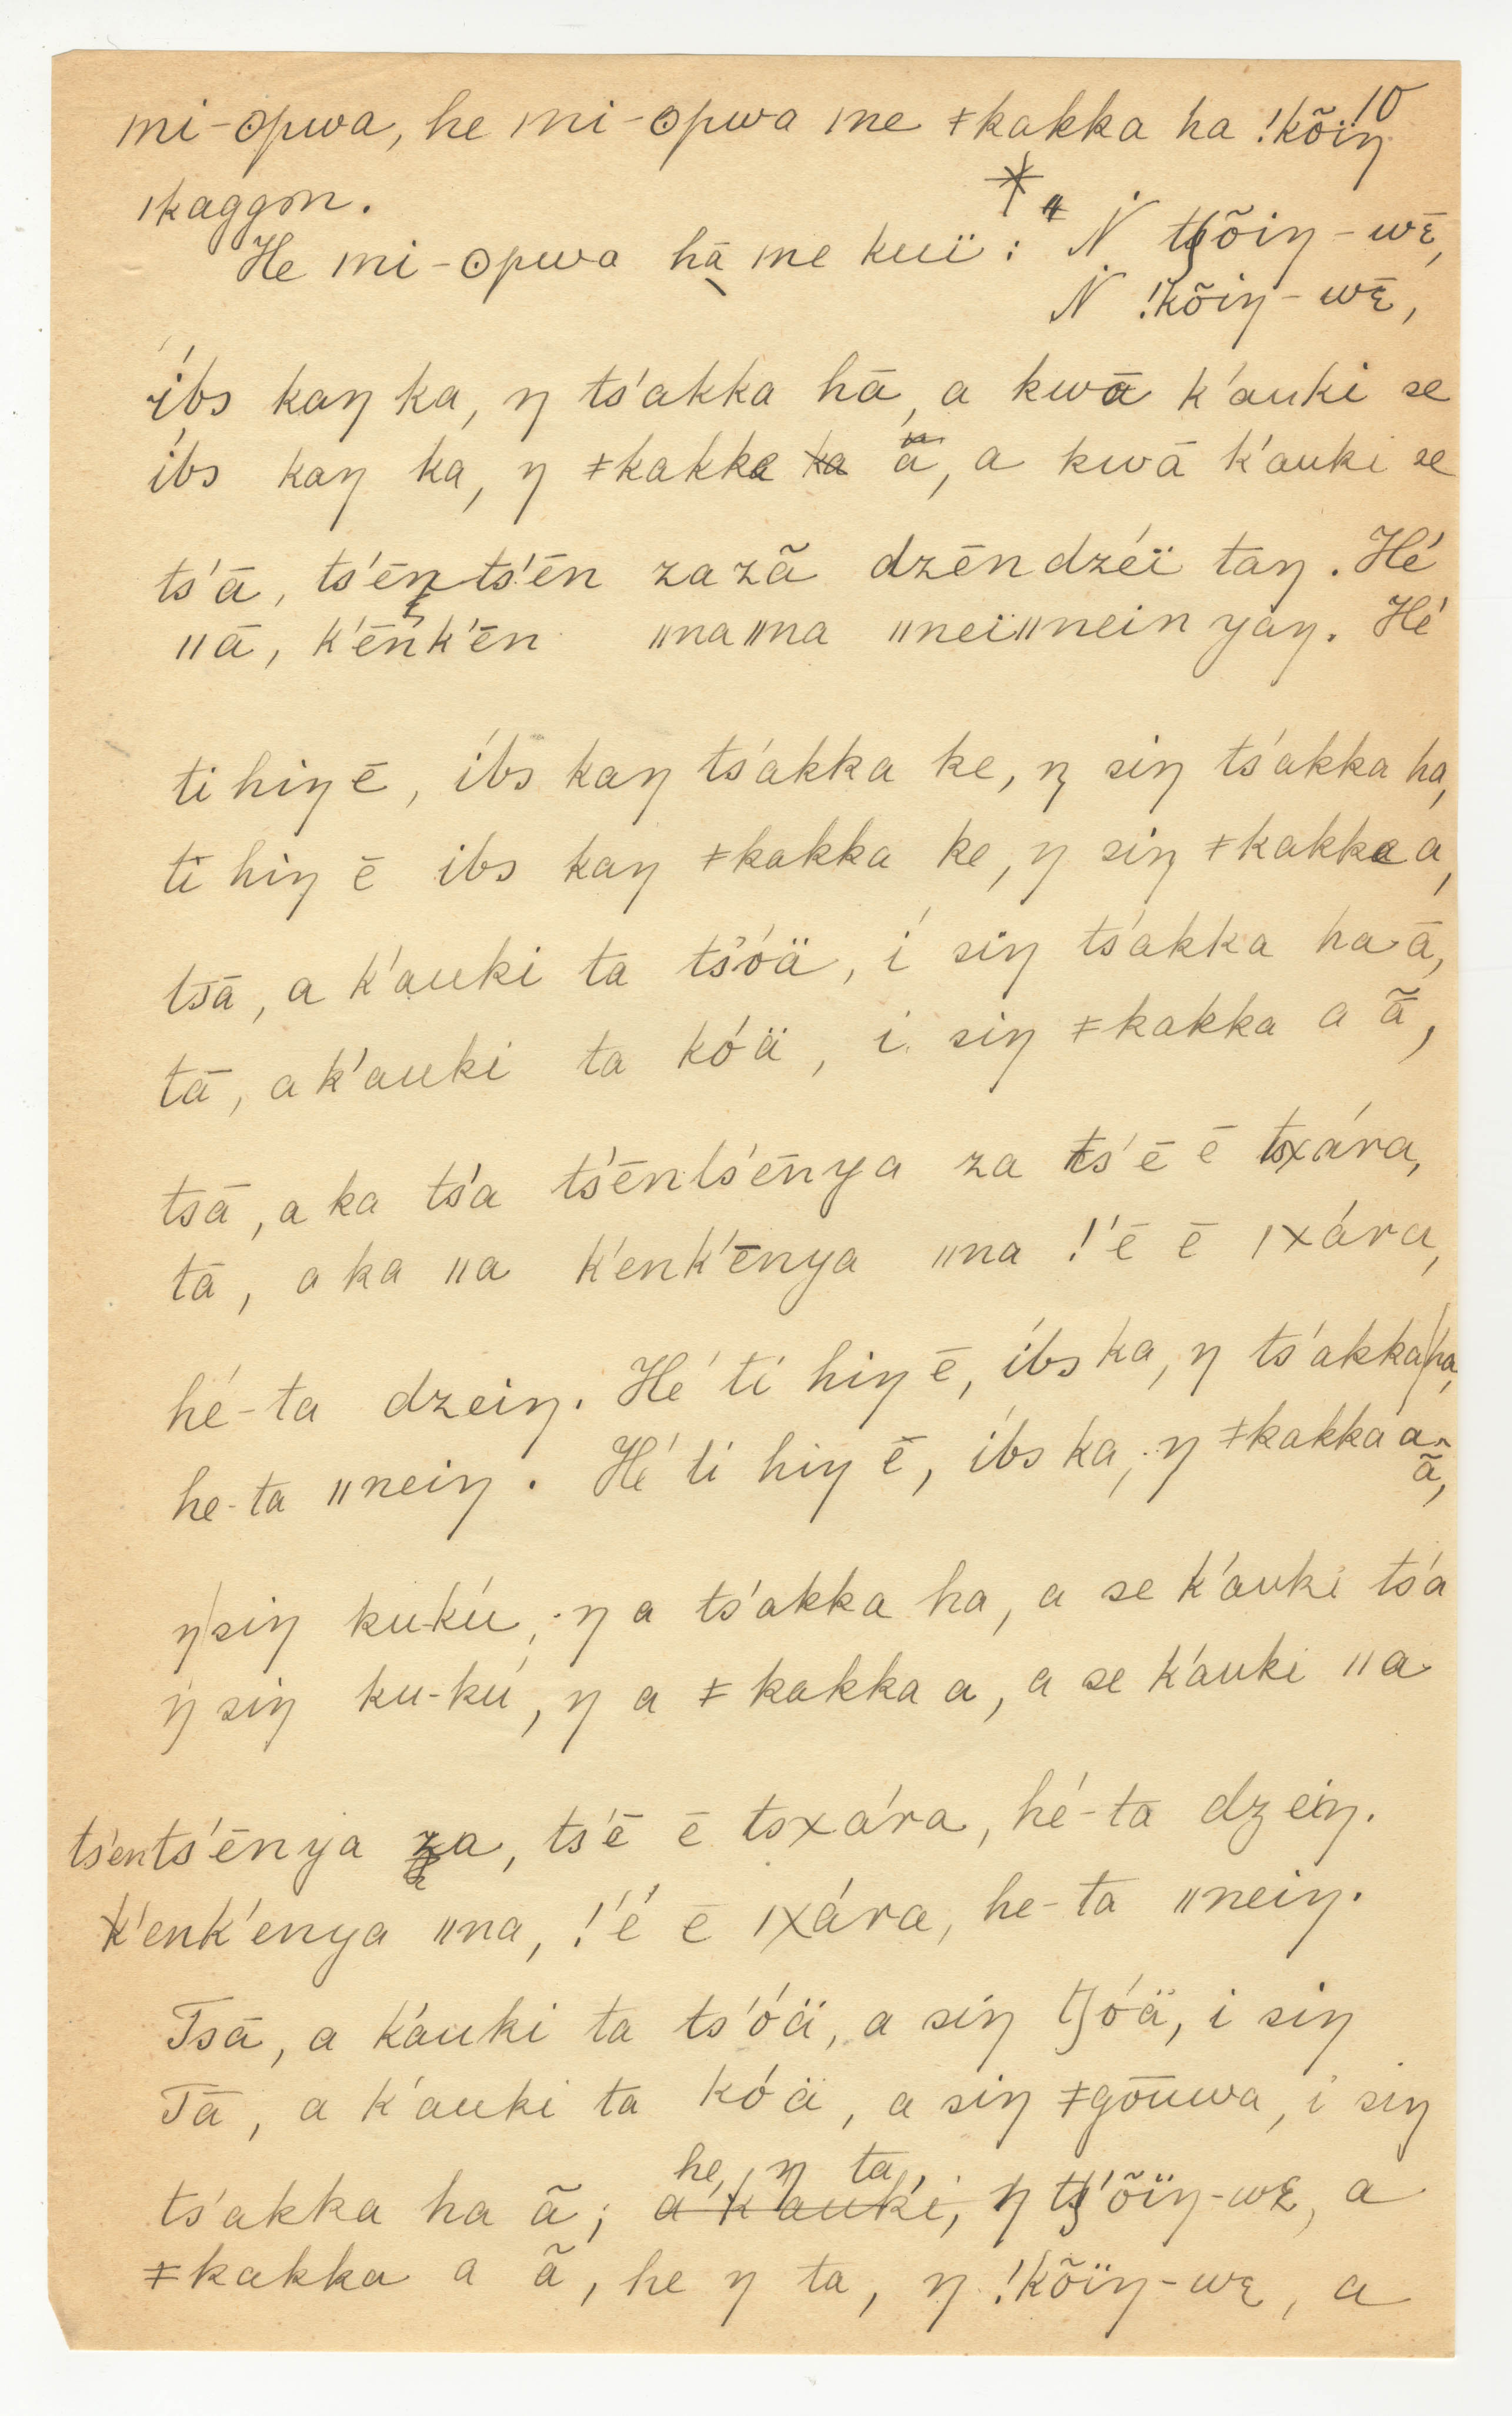 10
mi-ʘpwa, he mi-ʘpwa me ǂkakka ha !kõiŋ
ıkaggɜn.
He mi-ʘpwa hā me kuï: " Ṅ tʃõiŋ-wɛ̄,
Ṅ !kõiŋ-wɛ̄,
íbs kaŋ ka, ŋ ts'akka hā, a kwā k'auki se
íbs kaŋ ka, ŋ ǂkakka ā̃, a kwā k'auki se
ts'ā, ts'ēnts'ēn zazã dzēndzéï taŋ. Hé
ıı ā, k'ēnk'ēn ıına ıına ııneïııneinyaŋ. Hé
ti hiŋ ē, íbs kaŋ ts'akka ke, ŋ siŋ ts'akka ha,
ti hiŋ ē ibs kaŋ ǂkakka ke, ŋ siŋ ǂkakka a,
tsā, a k'auki ta ts'óä, í siŋ ts'akka ha ā,
tā, a k'auki ta kóä, i siŋ ǂkakka a ā̃,
tsā, a ka ts'a ts'ēnts'ēnya za ts'ē ē tsxára,
tā, a ka ıı a k'enk'ēnya ıına !'ē ē ıxára,
hé-ta dzeiŋ. Hé ti hiŋ ē, íbs ka, ŋ ts'akka ha,
he-ta ııneiŋ. Hé ti hiŋ ē, íbs ka, ŋ ǂkakka a
ã,
ŋ siŋ ku-kú, ŋ a ts'akka ha, a se k'auki ts'a
ŋ siŋ ku-kú, ŋ a ǂkakka a, a se k'auki ıı a
ts'ents'ēnya za, ts'ē ē tsxára, hé-ta dzeiŋ.
k'enk'enya ıına, !'é ē ıxára, he-ta ııneiŋ.
Tsā, a k'auki ta ts'óä, a siŋ tʃóä, i siŋ
Tā, a k'auki ta kóä, a siŋ ǂgōuwa, i siŋ
he, ŋ ta,
ts'akka ha ã; a k'auki, ŋ tʃ'õïŋ-wɛ, a
ǂkakka a ã, he ŋ ta, ŋ !kõïŋ-wɛ, a